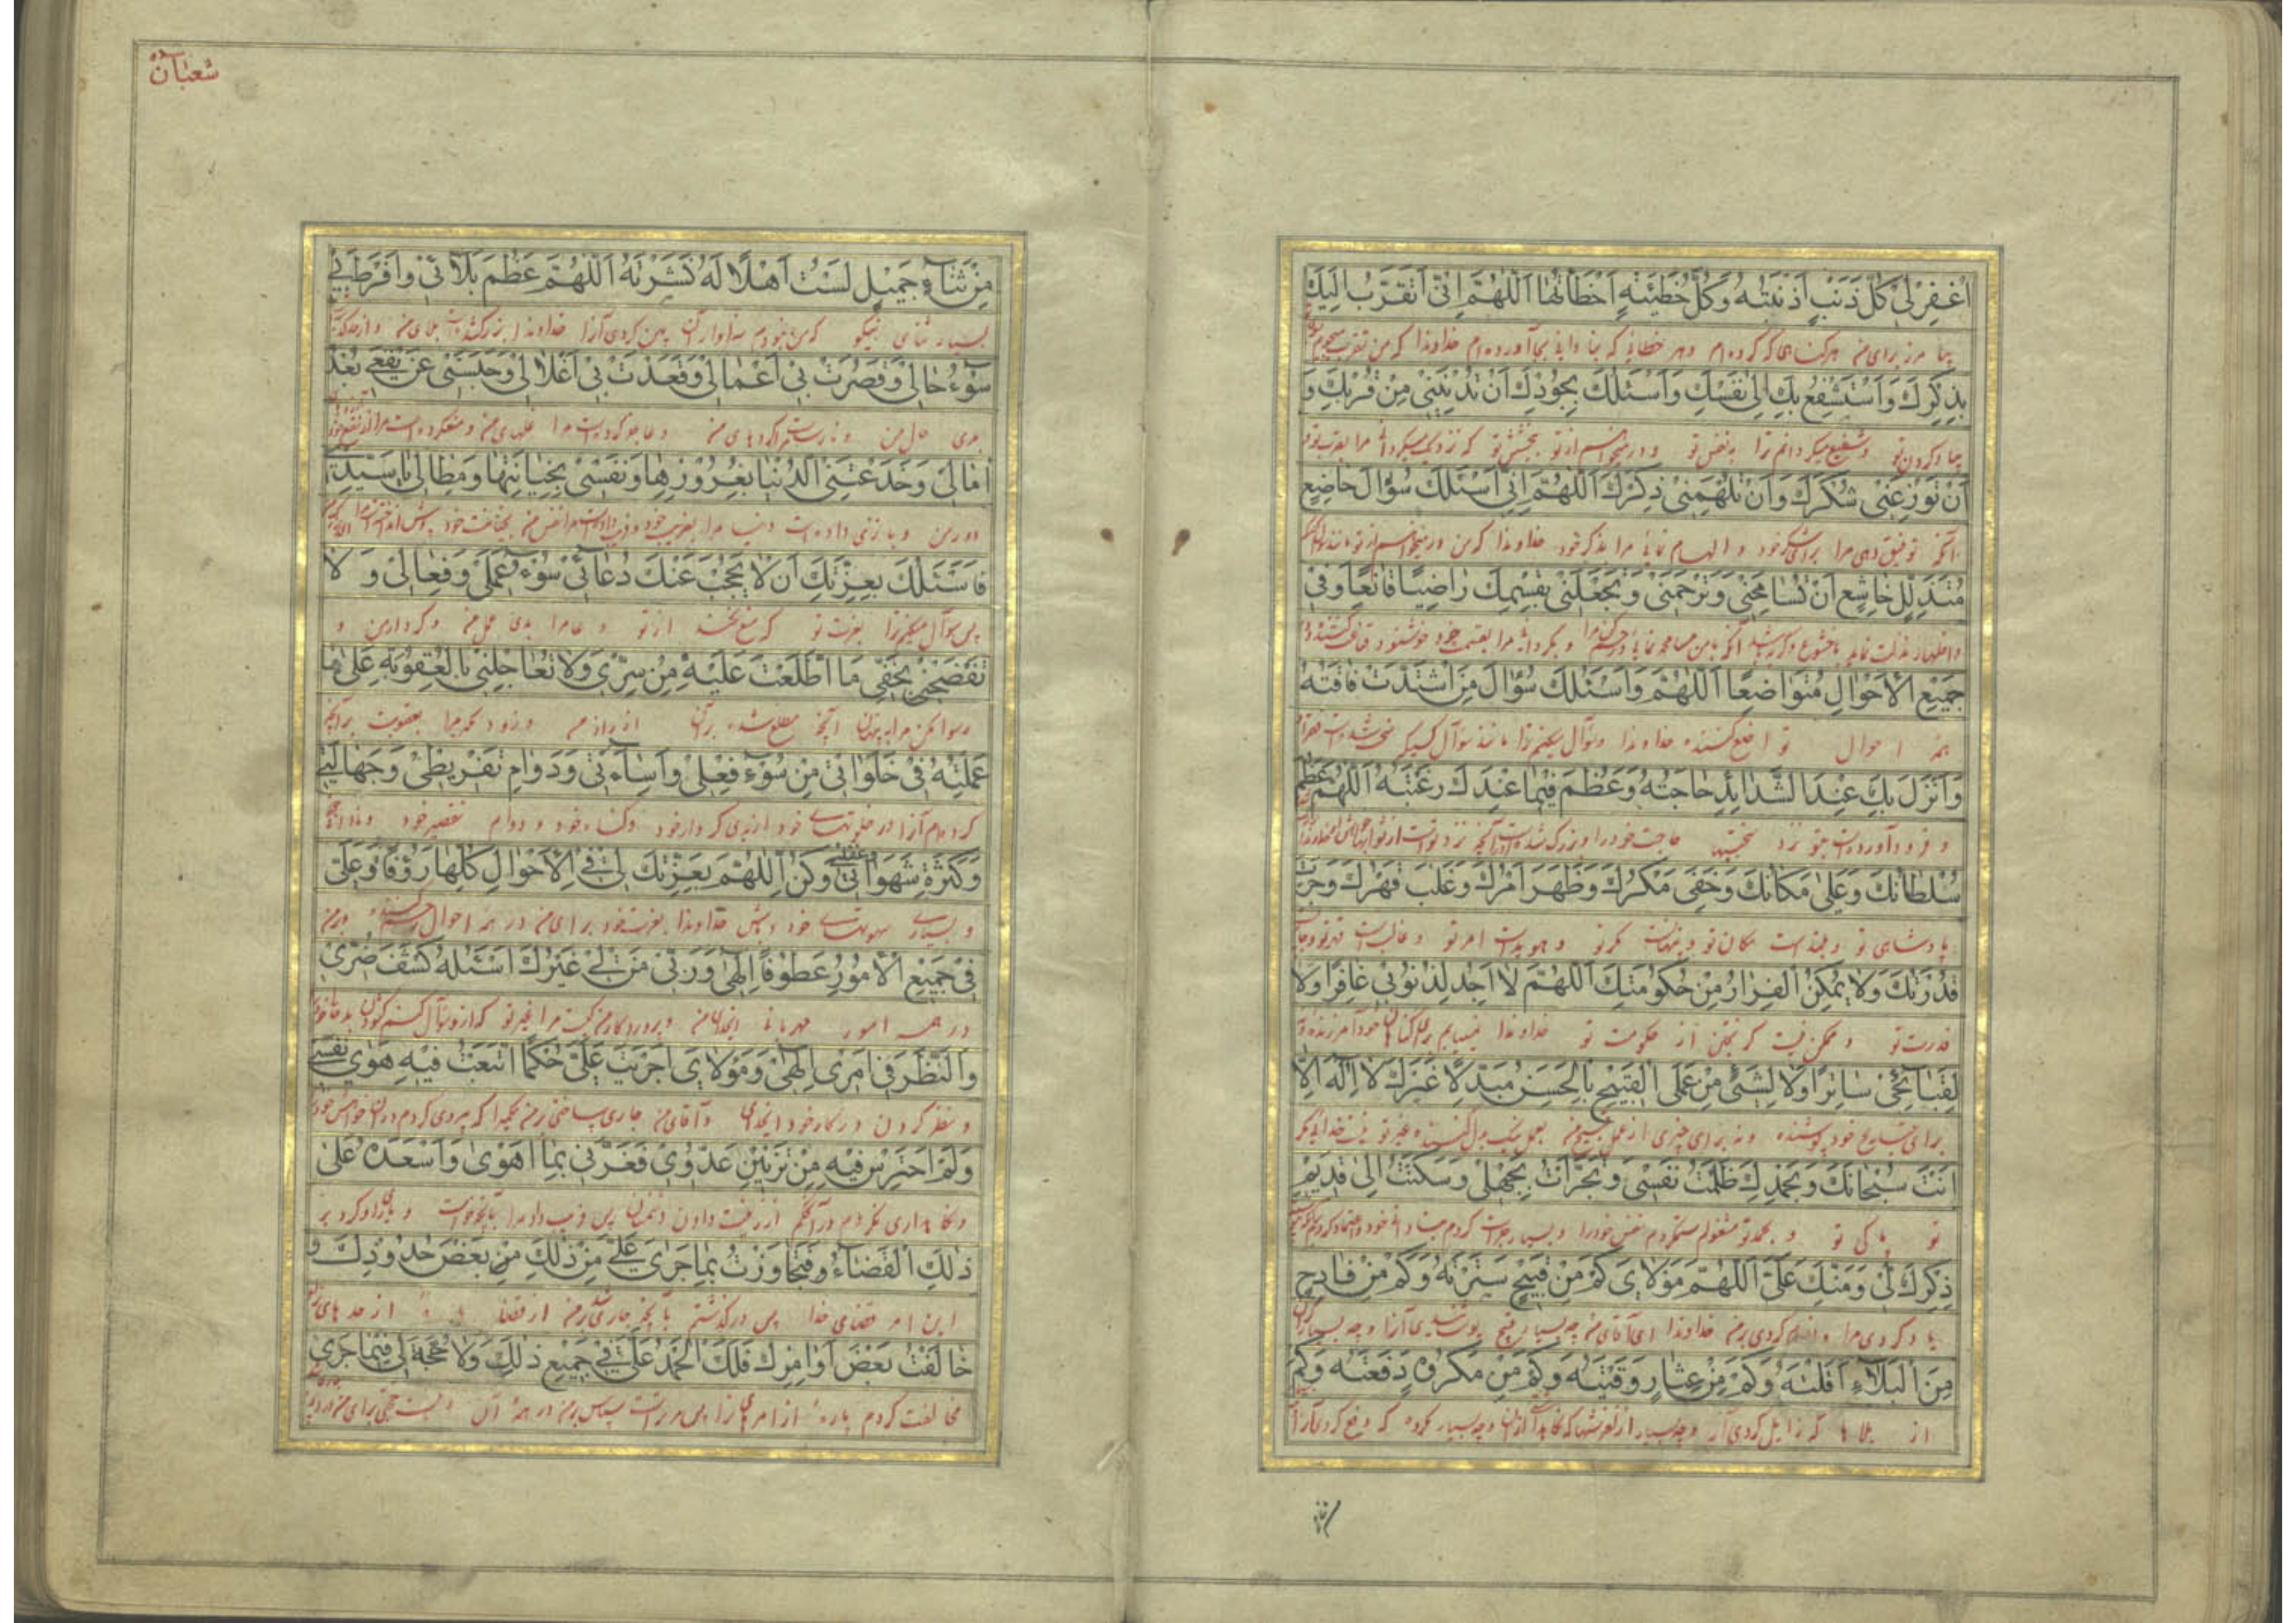 اغْفِرْ لِي كُلَّ ذَنْبٍ اَذْنَبْتُهُ وَكُلَّ خَطِيئَةٍ اَخْطَاْتُهَا اَللّٰهُمَّ اِنِّي اَتَقَرَّبُ اِلَيْكَ
بیامرز برای من هر گناهی که کرده‌ام و هر خطائی که بنادانی بجا آورده‌ام خداوندا که من تقرب میجویم
بِذِكْرِكَ وَاَسْتَشْفِعُ بِكَ اِلٰى نَفْسِكَ وَاَسْئَلُكَ بِجُودِكَ اَنْ تُدْنِيَنِي مِنْ قُرْبِكَ وَ
بیاد کردن تو و شفیع میگردانم ترا بنفس تو و درمیخواهم از تو ببخشش تو که نزدیک گردانی مرا بقرب تو و
اَنْ تُوزِعَنِي شُكْرَكَ وَاَنْ تُلْهِمَنِي ذِكْرَكَ اَللّٰهُمَّ اِنِّي اَسْئَلُكَ سُؤَالَ خَاضِعٍ
آنکه توفیق دهی مرا برای شکر خود و الهام نمائی مرا بذکر خود خداوندا که من درمیخواهم از تو مانند
مُتَذَلِّلٍ خَاشِعٍ اَنْ تُسَامِحَنِي وَتَرْحَمَنِي وَتَجْعَلَنِي بِقِسْمِكَ رَاضِيًا قَانِعًا وَفِي
و اظهار مذلت نماید با خشوع آنکه با من مسامحه نمائی و بگردانی مرا بقسمت خود خوشنود قناعت کننده
جَمِيعِ الْاَحْوَالِ مُتَوَاضِعًا اَللّٰهُمَّ وَاَسْئَلُكَ سُؤَالَ مَنِ اشْتَدَّتْ فَاقَتُهُ
همه احوال تواضع کننده خداوندا و سؤال میکنم ترا مانند سؤال کسیکه سخت شده است فقر او
وَاَنْزَلَ بِكَ عِنْدَ الشَّدَائِدِ حَاجَتَهُ وَعَظُمَ فِيمَا عِنْدَكَ رَغْبَتُهُ اَللّٰهُمَّ عَظُمَ
و فرود آورده است بتو نزد سختیها حاجت خود را و بزرگ شده است در آنچه نزد تو است
سُلْطَانُكَ وَعَلٰى مَكَانُكَ وَخَفِيَ مَكْرُكَ وَظَهَرَ اَمْرُكَ وَغَلَبَ قَهْرُكَ وَجَرَتْ
پادشاهی تو و بلند است مکان تو و پنهان است مکر تو و هویدا است امر تو و غالب است قهر تو و جاری
قُدْرَتُكَ وَلَا يُمْكِنُ الْفِرَارُ مِنْ حُكُومَتِكَ اَللّٰهُمَّ لَا اَجِدُ لِذُنُوبِي غَافِرًا وَلَا
قدرت تو و ممکن نیست گریختن از حکومت تو خداوندا نمییابم برای گناهان خود آمرزنده و نه
لِقَبَائِحِي سَاتِرًا وَلَا لِشَيْئٍ مِنْ عَمَلِيَ الْقَبِيحِ بِالْحَسَنِ مُبَدِّلًا غَيْرَكَ لَا اِلٰهَ اِلَّا
برای قبایح خود پوشنده و نه برای چیزی از عمل قبیح من بعمل نیک بدل کننده غیر تو نیست خدائی مگر
اَنْتَ سُبْحَانَكَ وَبِحَمْدِكَ ظَلَمْتُ نَفْسِي وَتَجَرَّاْتُ بِجَهْلِي وَسَكَنْتُ اِلٰى قَدِيمِ
تو پاکی تو و بحمد تو مشغولم ستم کردم نفس خود را و بسیار جرات کردم بنادانی خود
ذِكْرِكَ لِي وَمَنِّكَ عَلَيَّ اَللّٰهُمَّ مَوْلَايَ كَمْ مِنْ قَبِيحٍ سَتَرْتَهُ وَكَمْ مِنْ فَادِحٍ
یاد کردی مرا و انعام کردی بر من خداوندا ای آقای من چه بسیار قبیح پوشانیدی آنرا و چه بسیار گران
مِنَ الْبَلَاءِ اَقَلْتَهُ وَكَمْ مِنْ عِثَارٍ وَقَيْتَهُ وَكَمْ مِنْ مَكْرُوهٍ دَفَعْتَهُ وَكَمْ
از بلاها که زایل کردی آنرا و چه بسیار از لغزشها که و چه بسیار مکروه که دفع کردی آنرا
شعبان
مِنْ ثَنَاءٍ جَمِيلٍ لَسْتُ اَهْلًا لَهُ نَشَرْتَهُ اَللّٰهُمَّ عَظُمَ بَلَائِي وَاَفْرَطَ بِي
بسیار ثنای نیکو که من نبودم سزاوار آن پهن کردی آنرا خداوندا بزرگ شده است بلای من و از حد گذشته
سُوءُ حَالِي وَقَصُرَتْ بِي اَعْمَالِي وَقَعَدَتْ بِي اَغْلَالِي وَحَبَسَنِي عَنْ نَفْعِي بُعْدُ
بدی حال من و نارساست کردهای من و عاجز کرده است مرا غلهای من
اٰمَالِي وَخَدَعَتْنِي الدُّنْيَا بِغُرُورِهَا وَنَفْسِي بِخِيَانَتِهَا وَمِطَالِي يَا سَيِّدِي
و بازی داده است دنیا مرا بفریب خود نفس من بخیانت خود
فَاَسْئَلُكَ بِعِزَّتِكَ اَنْ لَا يَحْجُبَ عَنْكَ دُعَائِي سُوءُ عَمَلِي وَفِعَالِي وَلَا
پس سؤال میکنم ترا بعزت تو که منع نکند از تو دعا مرا بدی عمل من و کردار من و
تَفْضَحْنِي بِخَفِيِّ مَا اطَّلَعْتَ عَلَيْهِ مِنْ سِرِّي وَلَا تُعَاجِلْنِي بِالْعُقُوبَةِ عَلٰى مَا
رسوا مکن مرا به پنهان آنچه مطلع شده برآن از راز من و زود مگیر مرا بعقوبت برآنچه
عَمِلْتُهُ فِي خَلَوَاتِي مِنْ سُوءِ فِعْلِي وَاِسَاءَتِي وَدَوَامِ تَفْرِيطِي وَجَهَالَتِي
کرده‌ام آنرا در خلوتهای خود از بدی کردار خود و گناه خود و دوام تقصیر خود و نادانی
وَكَثْرَةِ شَهَوَاتِي وَغَفْلَتِي وَكُنِ اَللّٰهُمَّ بِعِزَّتِكَ لِي فِي الْاَحْوَالِ كُلِّهَا رَؤُفًا وَعَلَيَّ
و بسیاری شهوتهای خود و باش خداوندا بعزت خود برای من در همه احوال و بر من
فِي جَمِيعِ الْاُمُورِ عَطُوفًا اِلٰهِي وَرَبِّي مَنْ لِي غَيْرُكَ اَسْئَلُهُ كَشْفَ ضُرِّي
در همه امور مهربان ایخدای من و پروردگار من کیست مرا غیر تو که از او سؤال کنم
وَالنَّظَرَ فِي اَمْرِي اِلٰهِي وَمَوْلَايَ اَجْرَيْتَ عَلَيَّ حُكْمًا اتَّبَعْتُ فِيهِ هَوٰى نَفْسِي
و نظر کردن در کار خود ایخدای و آقای من جاری ساختی بر من حکمیرا که پیروی کردم در آن خواهش خود
وَلَمْ اَحْتَرِسْ فِيهِ مِنْ تَزْيِينِ عَدُوِّي فَغَرَّنِي بِمَا اَهْوٰى وَاَسْعَدَهُ عَلٰى
و نگاهداری نکردم در آن حکم از زینت دادن دشمنان پس فریب داد مرا بآنچه خواست و یاری او کرد بر
ذٰلِكَ الْقَضَاءُ فَتَجَاوَزْتُ بِمَا جَرٰى عَلَيَّ مِنْ ذٰلِكَ مِنْ بَعْضِ حُدُودِكَ وَ
این امر قضای خدا پس درگذشتم بآنچه جاری شد بر من از قضا از حدهای
خَالَفْتُ بَعْضَ اَوَامِرِكَ فَلَكَ الْحَمْدُ عَلَيَّ فِي جَمِيعِ ذٰلِكَ وَلَا حُجَّةَ لِي فِيمَا جَرٰى
مخالفت کردم پاره از امرهای ترا پس مر تراست سپاس بر من در همه آن و نیست حجتی برای من در آنچه